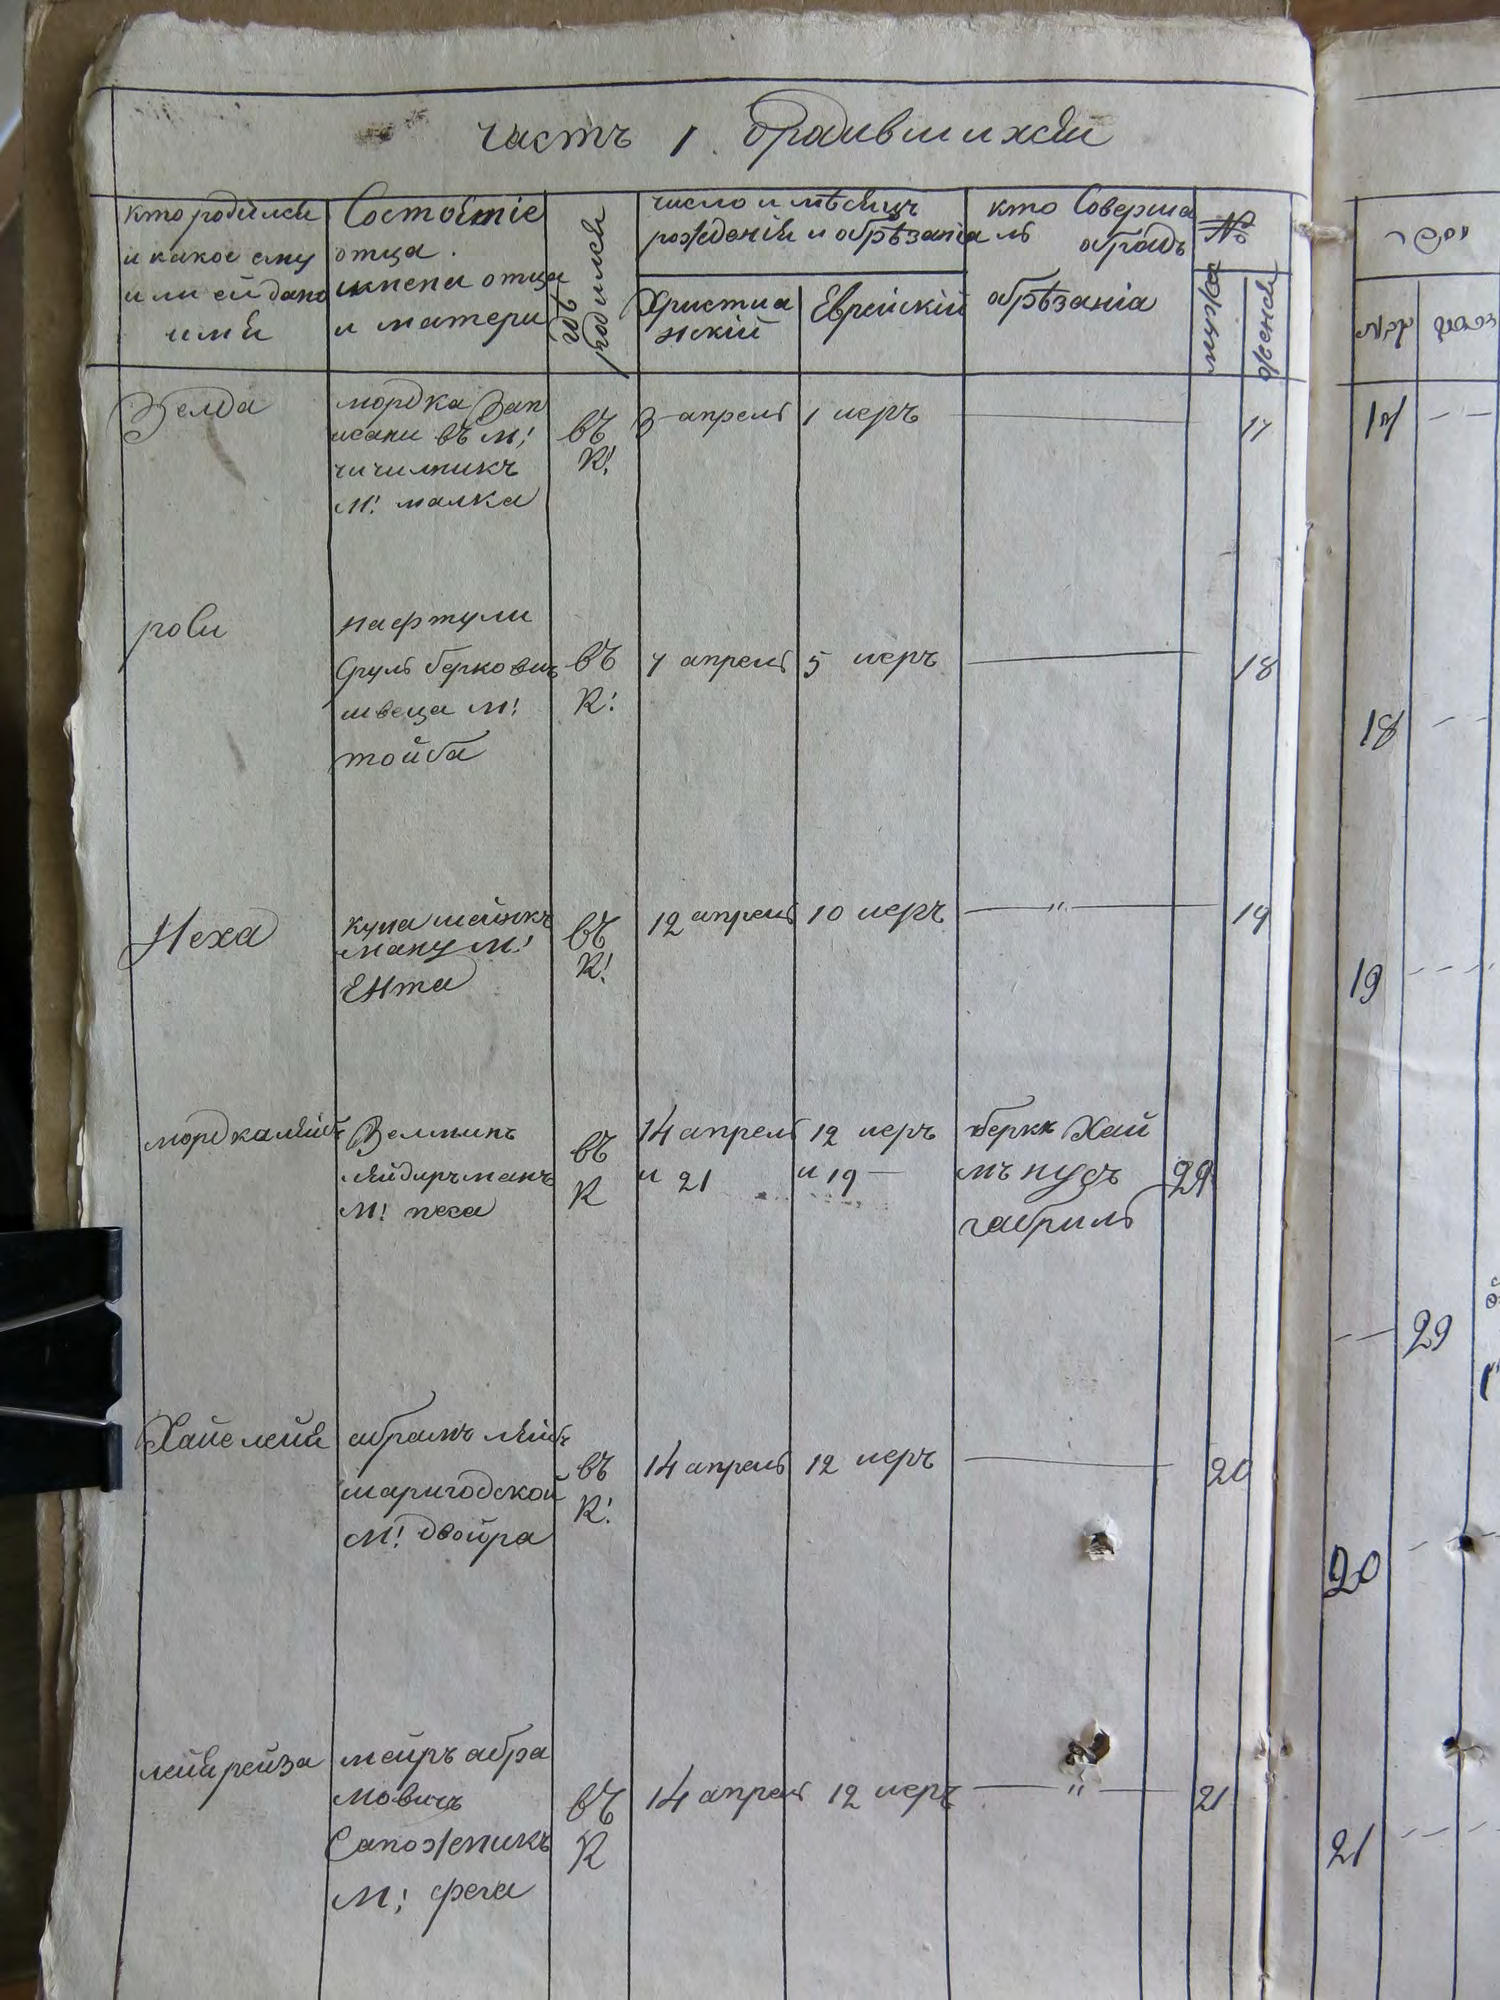 часть 1. ородившихся
кто родился
и какое ему
или ей дано
имя
Состояніе
отца.
имена отца
и матери
гдѣ родился
число и мѣсяцъ
рожденія и обрѣзанія
Христиа
нскій
Еврейскій
кто Соверша
лъ обрадъ
обрѣзанія
№
мужеска
женска
Зелда
мордка Зап
исани въ м!
чичилникъ
М! малка
въ
К!
3 апреля
1 иеръ
17
рося
нафтули
Сруль берковичъ
швеца М!
тойба
въ
К!
7 апреля
5 иеръ
18
Неха
М!
Ента
въ
К!
12 апреля
10 иеръ
"
19
мордка лейбъ
М! песа
въ
К
14 апреля
и 21
12 иеръ
и 19 —
берко Хай
мъ нусъ
габриль
29
Хайе лейя
абрамъ лейбъ
шаригодской
М! двойра
въ
К!
14 апреля
12 иеръ
20
лейя рейза
мейръ абра
мовичъ
Сапожникъ
М! фега
въ
К
14 апреля
12 иеръ
"
21
17
18
19
29
20
21